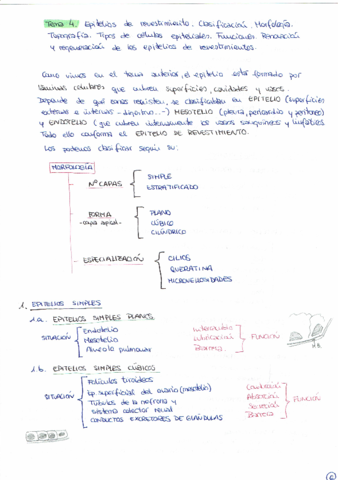 Tema 4. Epitelios de revestimiento. Clasificación. Morfología.
Topografía. Tipos de células epiteliales. Funciones. Renovación
y regeneración de los epitelios de revestimientos.
Como vimos en el tema anterior, el epitelio está formado por
láminas celulares que cubren superficies, cavidades y vasos.
Depende de qué zonas revisten, se clasificarán en EPITELIO (superficies
externas e internas - digestivo...-) MESOTELIO (pleura, pericardio y peritoneo)
y ENDOTELIO (que cubren internamente los vasos sanguíneos y linfáticos)
Todo ello conforma el EPITELIO DE REVESTIMIENTO.
Los podemos clasificar según su:
MORFOLOGÍA
Nº CAPAS
SIMPLE
ESTRATIFICADO
FORMA
-capa apical-
PLANO
CÚBICO
CILÍNDRICO
ESPECIALIZACIÓN
CILIOS
QUERATINA
MICROVELLOSIDADES
1. EPITELIOS SIMPLES
1.a. EPITELIOS SIMPLES PLANOS
SITUACIÓN
Endotelio
Mesotelio
Alveolo pulmonar
Intercambio
Lubricación
Barrera
FUNCIÓN
1.b. EPITELIOS SIMPLES CÚBICOS
SITUACIÓN
Folículos tiroideos
Ep. superficial del ovario (mesotelio)
Túbulos de la nefrona y
sistema colector renal
CONDUCTOS EXCRETORES DE GLÁNDULAS
Absorción
Secreción
Barrera
FUNCIÓN